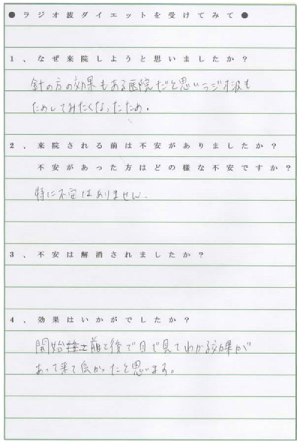 ●ラジオ波ダイエットを受けてみて●
1、なぜ来院しようと思いましたか?
針の方の効果もある医院だと思いラジオ波も
ためしてみたくなったため。
2、来院される前は不安がありましたか?
不安があった方はどの様な不安ですか?
特に不安はありません。
3、不安は解消されましたか?
4、効果はいかがでしたか?
開始 前と後で目で見てわかる効果が
あって来て良かったと思います。